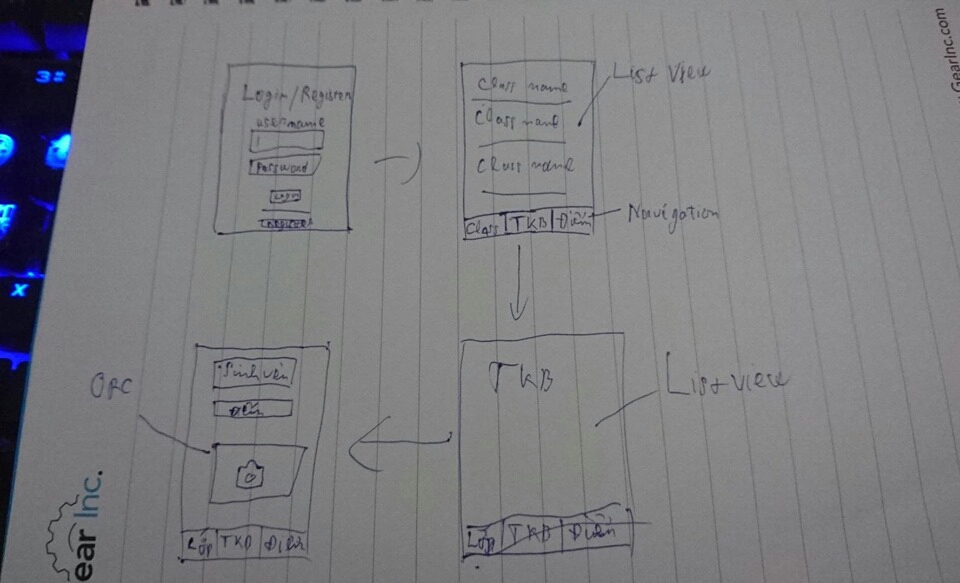 Login/Register
username
password
Login
Register
Class name
Class name
Class name
List View
Class TKB Điểm
Navigation
TKB
List view
Lớp TKB Điểm
ORC
Sinh viên
Điểm
Lớp TKB Điểm
GearInc.com
ear Inc.
3#
X